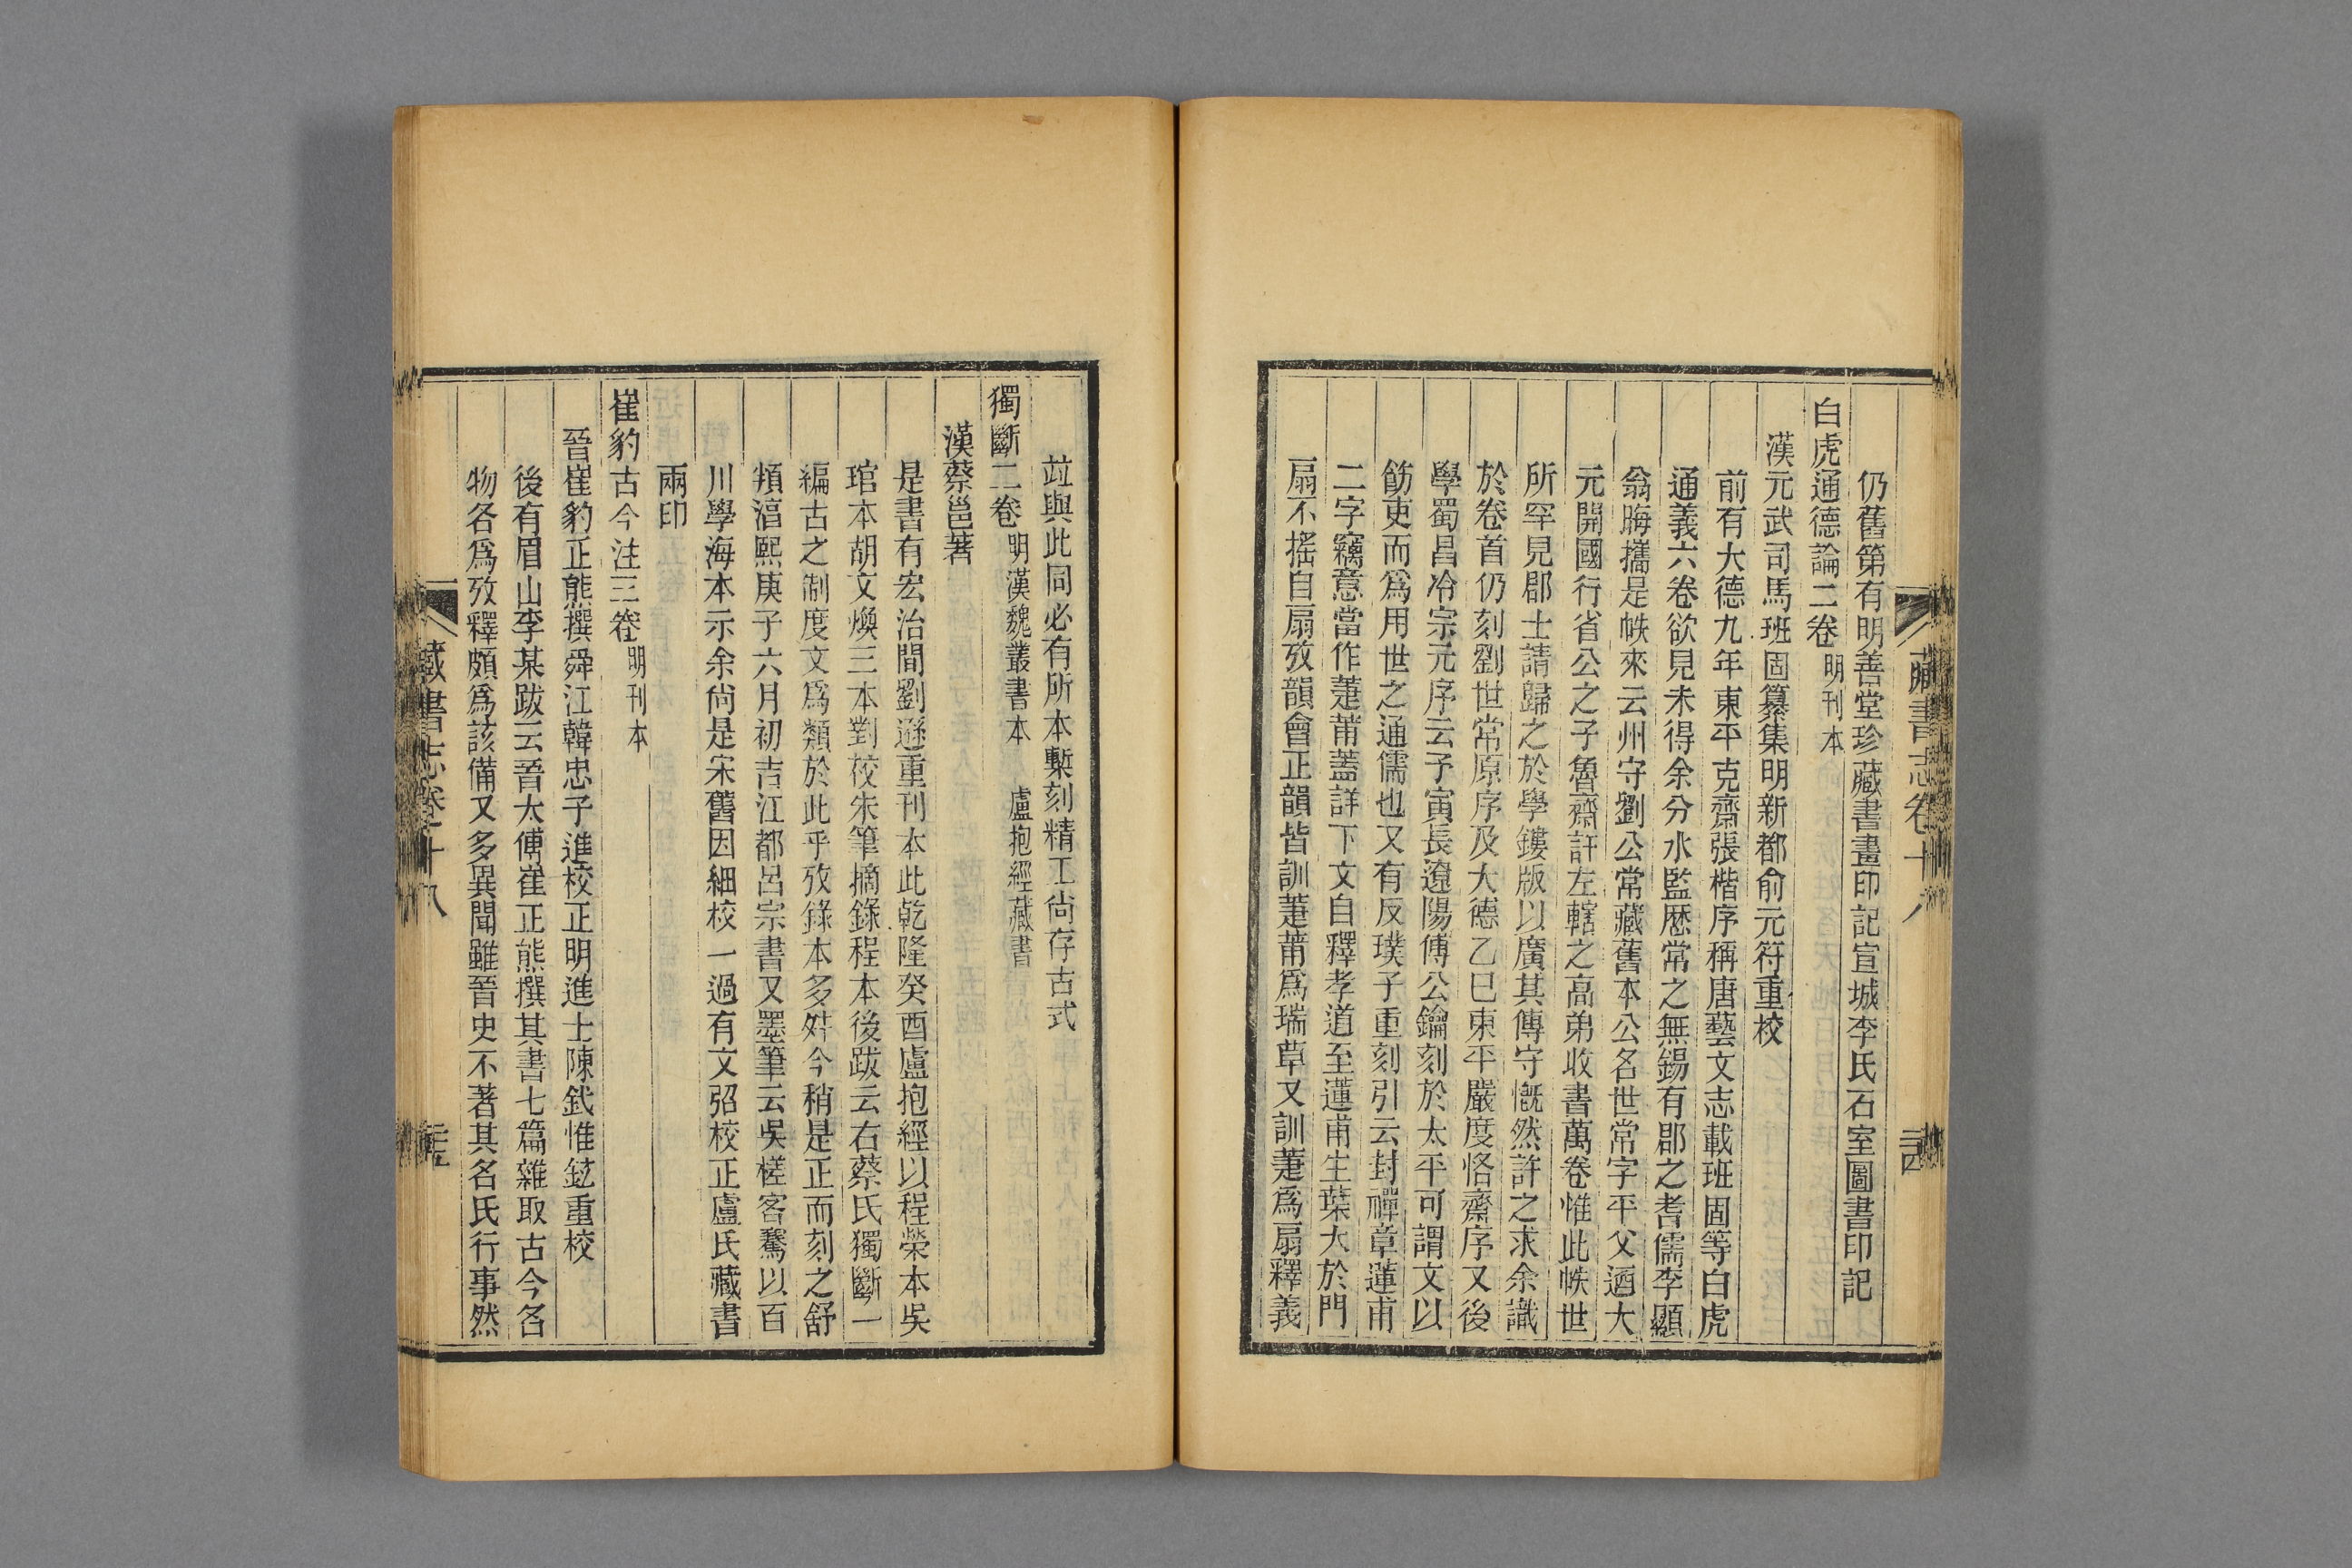 藏書志卷十八
仍舊第有明善堂珍藏書畫印記宣城李氏石室圖書印記
白虎通德論二卷 明刊本
漢元武司馬班固纂集明新都俞元符重校
前有大德九年東平克齋張楷序稱唐藝文志載班固等白虎
通義六卷欲見未得余分水監歴常之無錫有郡之耆儒李顯
翁晦攜是帙來云州守劉公常藏舊本公名世常字平父迺大
元開國行省公之子魯齋許左轄之高弟收書萬卷惟此帙世
所罕見郡士請歸之於學鏤版以廣其傳守慨然許之求余識
於卷首仍刻劉世常原序及大德乙巳東平嚴度恪齋序又後
學蜀昌冷宗元序云予寅長遼陽傅公鑰刻於太平可謂文以
飭吏而爲用世之通儒也又有反璞子重刻引云封禪章蓮甫
二字竊意當作萐莆蓋詳下文自釋孝道至蓮甫生葉大於門
扇不搖自扇攷韻會正韻皆訓萐莆爲瑞草又訓萐爲扇釋義
竝與此同必有所本槧刻精工尙存古式
獨斷二卷 明漢魏叢書本 盧抱經藏書
漢蔡邕著
是書有宏治間劉遜重刊本此乾隆癸酉盧抱經以程榮本吳
琯本胡文煥三本對校朱筆摘錄程本後跋云右蔡氏獨斷一
編古之制度文爲類於此乎攷錄本多舛今稍是正而刻之舒
頖湻熙庚子六月初吉江都呂宗書又墨筆云吳槎客騫以百
川學海本示余尙是宋舊因細校一過有文弨校正盧氏藏書
兩印
崔豹古今注三卷 明刊本
晉崔豹正熊撰舜江韓忠子進校正明進士陳鉽惟鉉重校
後有眉山李某跋云晉太傅崔正熊撰其書七篇雜取古今名
物各爲攷釋頗爲該備又多異聞雖晉史不著其名氏行事然
藏書志卷十八